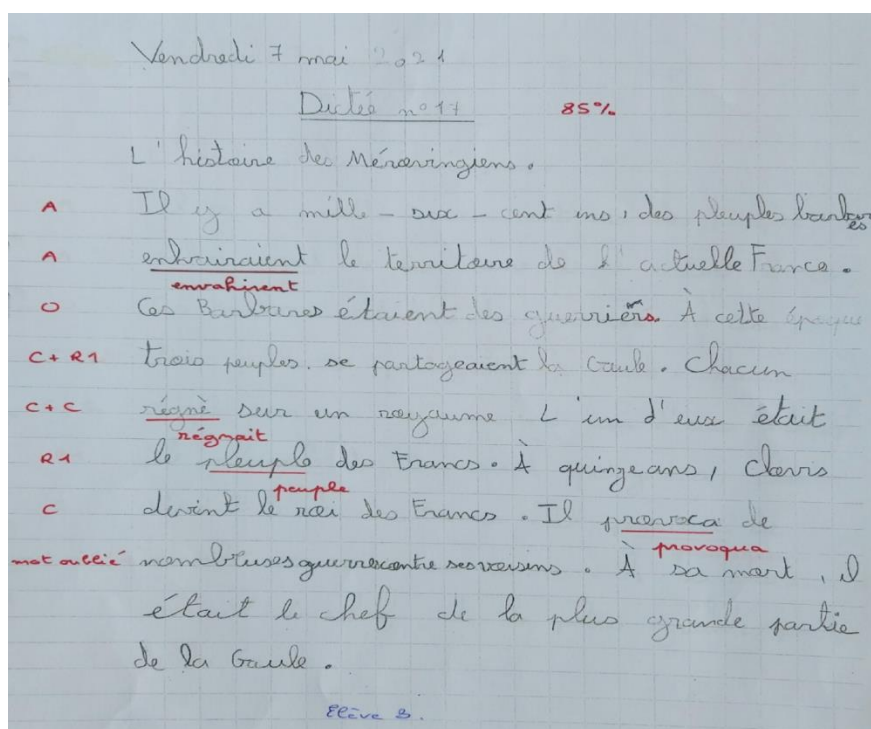 Vendredi 7 mai 2021
Dictée n°17 85%
L'histoire des Mérovingiens.
A Il y a mille-six-cent ans, des pleuples barbares
A enhvairaient le territoire de l'actuelle France.
envahirent
O Ces Barbares étaient des guerriers. À cette époque
C+R1 trois peuples se partageaient la Gaule. Chacun
C+C régnè sur un royaume L'un d'eux était
régnait
R1 le pleuple des Francs. À quinze ans, Clovis
peuple
C devint le roi des Francs. Il provoca de
provoqua
mot oublié nombruses guerres contre ses voisins. À sa mort, il
était le chef de la plus grande partie
de la Gaule.
Elève 3.